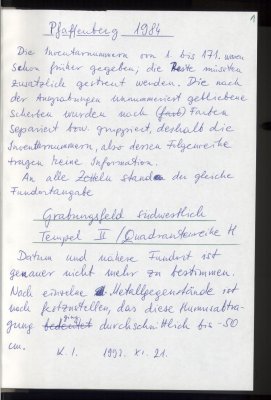 1
Pfaffenberg 1984
Die Inventarnummern von 1 bis 171. waren
schon früher gegeben, die Reste mussten
zusätzlich getrennt werden. Die nach
der Ausgrabungen unnumeriert gebliebene
Scherben wurden nach (farb) Farben
separiert bzw. gruppiert, deshalb die
Inventarnummern, also deren Folgereihe
tragen keine Information.
An alle Zetteln standen die gleiche
Fundortangabe
Grabungsfeld südwestlich
Tempel II / Quadrantenreihe H
Datum und nähere Fundort ist
genauer nicht mehr zu bestimmen.
Noch einzelne Metallgegenstände ist
noch festzustellen, das diese Humusabtra-
gung ging durchschnittlich bis -50
cm.
K. I. 1992. XI. 21.